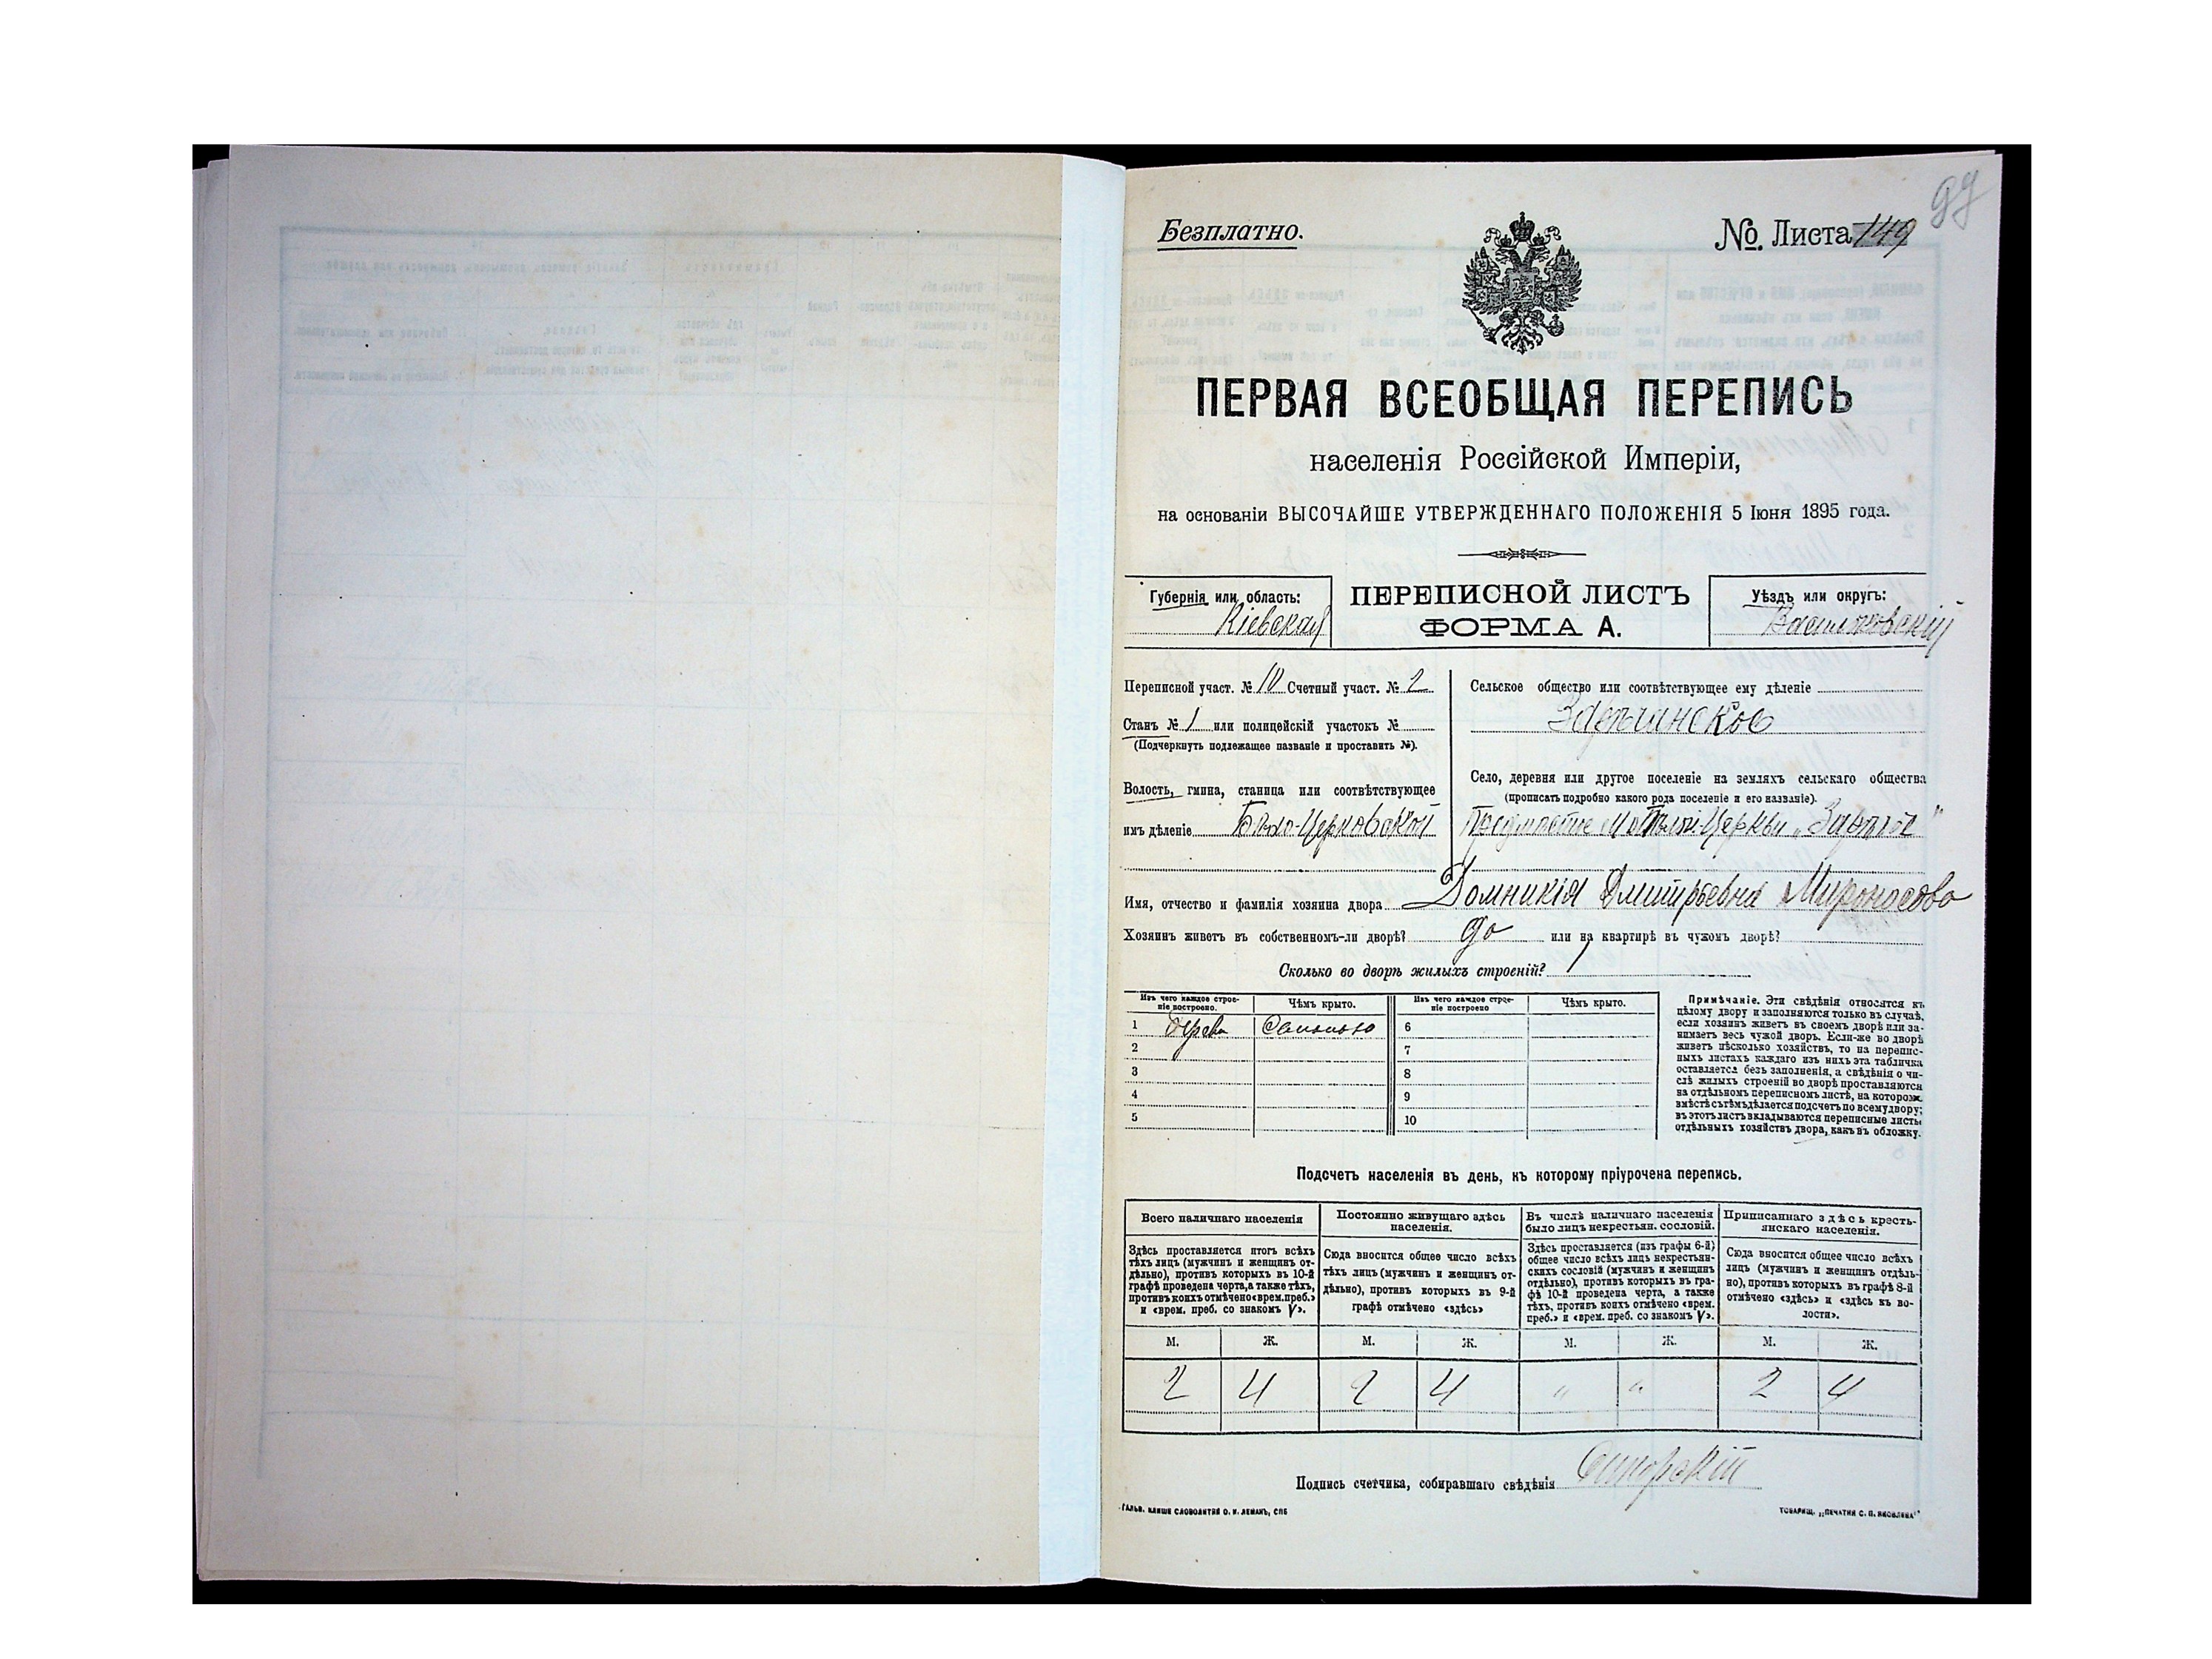 99
Безплатно.
№. Листа 149
ПЕРВАЯ ВСЕОБЩАЯ ПЕРЕПИСЬ
населенія Россійской Имперіи,
на основаніи ВЫСОЧАЙШЕ УТВЕРЖДЕННАГО ПОЛОЖЕНІЯ 5 Іюня 1895 года.
Губернія или область:
Кіевская
ПЕРЕПИСНОЙ ЛИСТЪ
ФОРМА А.
Уѣздъ или округъ:
Васильковскій
Переписной участ. № 10 Счетный участ. № 2
Станъ № 1 или полицейскій участокъ №
(Подчеркнуть подлежащее названіе и проставить №).
Волость, гмина, станица или соотвѣтствующее
имъ дѣленіе Бѣло-Церковской
Сельское общество или соотвѣтствующее ему дѣленіе
Зарѣчанское
Село, деревня или другое поселеніе на земляхъ сельскаго общества
(прописать подробно какого рода поселеніе и его названіе).
Предмѣстье Бѣлой-Церкви „Зарѣчье"
Имя, отчество и фамилія хозяина двора Домникія Дмитріевна Мироносова
Хозяинъ живетъ въ собственномъ-ли дворѣ? да или на квартирѣ въ чужомъ дворѣ?
Сколько во дворѣ жилыхъ строеній? 1
Изъ чего каждое строеніе построено. Чѣмъ крыто. Изъ чего каждое строеніе построено Чѣмъ крыто.
1 дерева Соломою 6
2 7
3 8
4 9
5 10
Примѣчаніе. Эти свѣдѣнія относятся къ
цѣлому двору и заполняются только въ случаѣ,
если хозяинъ живетъ въ своемъ дворѣ или за-
нимаетъ весь чужой дворъ. Если-же во дворѣ
живетъ нѣсколько хозяйствъ, то на перепис-
ныхъ листахъ каждаго изъ нихъ эта табличка
оставляется безъ заполненія, а свѣдѣнія о чи-
слѣ жилыхъ строеній во дворѣ проставляются
на отдѣльномъ переписномъ листѣ, на которомъ
вмѣстѣ съ тѣмъ дѣлается подсчетъ по всему двору;
въ этотъ листъ вкладываются переписные листы
отдѣльныхъ хозяйствъ двора, какъ въ обложку.
Подсчетъ населенія въ день, къ которому пріурочена перепись.
Всего наличнаго населенія
Здѣсь проставляется итогъ всѣхъ
тѣхъ лицъ (мужчинъ и женщинъ от-
дѣльно), противъ которыхъ въ 10-й
графѣ проведена черта, а также тѣхъ,
противъ коихъ отмѣчено «врем. преб.»
и «врем. преб. со знакомъ V».
Постоянно живущаго здѣсь
населенія.
Сюда вносится общее число всѣхъ
тѣхъ лицъ (мужчинъ и женщинъ от-
дѣльно), противъ которыхъ въ 9-й
графѣ отмѣчено «здѣсь»
Въ числѣ наличнаго населенія
было лицъ некрестьян. сословій.
Здѣсь проставляется (изъ графы 6-й)
общее число всѣхъ лицъ некрестьян-
скихъ сословій (мужчинъ и женщинъ
отдѣльно), противъ которыхъ въ гра-
фѣ 10-й проведена черта, а также
тѣхъ, противъ коихъ отмѣчено «врем.
преб.» и «врем. преб. со знакомъ V».
Приписаннаго здѣсь кресть-
янскаго населенія.
Сюда вносится общее число всѣхъ
лицъ (мужчинъ и женщинъ отдѣль-
но), противъ которыхъ въ графѣ 8-й
отмѣчено «здѣсь» и «здѣсь къ во-
лости».
М. Ж. М. Ж. М. Ж. М. Ж.
2 4 2 4 " " 2 4
Подпись счетчика, собиравшаго свѣдѣнія Сикорскій
ГАЛЬВ. КЛИШЕ СЛОВОЛИТНИ О. И. ЛЕМАНЪ, СПБ
ТОВАРИЩ. „ПЕЧАТНЯ С. П. ЯКОВЛЕВА"